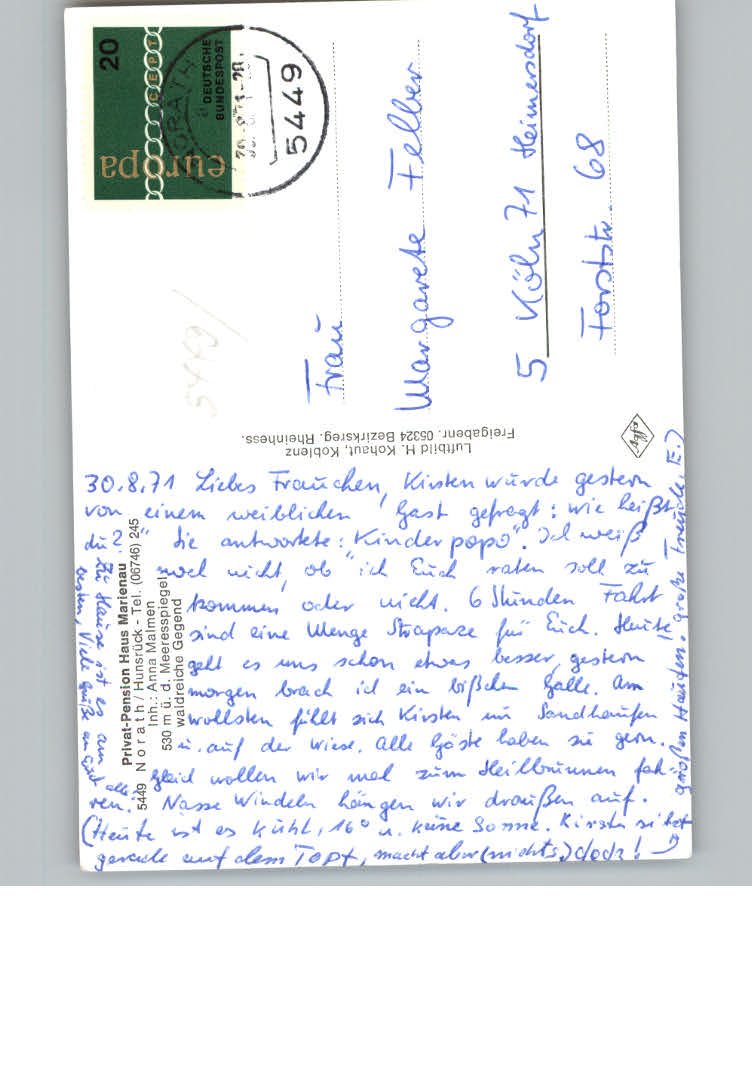 20
CEPT
DEUTSCHE
BUNDESPOST
europa
NORATH
30.8.71-20
5449
5449
Frau
Margarete Felber
5 Köln 71 Heimersdorf
Forststr. 68
Luftbild H. Kohaut, Koblenz
Freigabenr. 05324 Bezirksreg. Rheinhess.
Privat-Pension Haus Marienau
5449 Norath / Hunsrück - Tel. (06746) 245
Inh.: Anna Malmen
530 m ü. d. Meeresspiegel
waldreiche Gegend
30.8.71 Liebes Frauchen, Kirsten wurde gestern
von einem weiblichen Gast gefragt: wie heißt
du?" Sie antwortete: "Kinderpopo". Ich weiß
noch nicht, ob ich Euch raten soll zu
kommen oder nicht. 6 Stunden Fahrt
sind eine Menge Strapaze für Euch. Heute
geht es uns schon etwas besser, gestern
morgen brach ich ein bißchen Galle. Am
wollsten fühlt sich Kirsten im Sandhaufen
u. auf der Wiese. Alle Gäste haben sie gern.
Gleich wollen wir mal zum Heilbrunnen fah-
ren. Nasse Windeln hängen wir draußen auf.
(Heute ist es kühl, 16° u. keine Sonne. Kirsten sitzt
gerade auf dem Topf, macht aber (nichts,) doch!
großen Haufen, große Freude. E.)
Zu Hause ist es am
besten, Viele Grüße an Euch alle